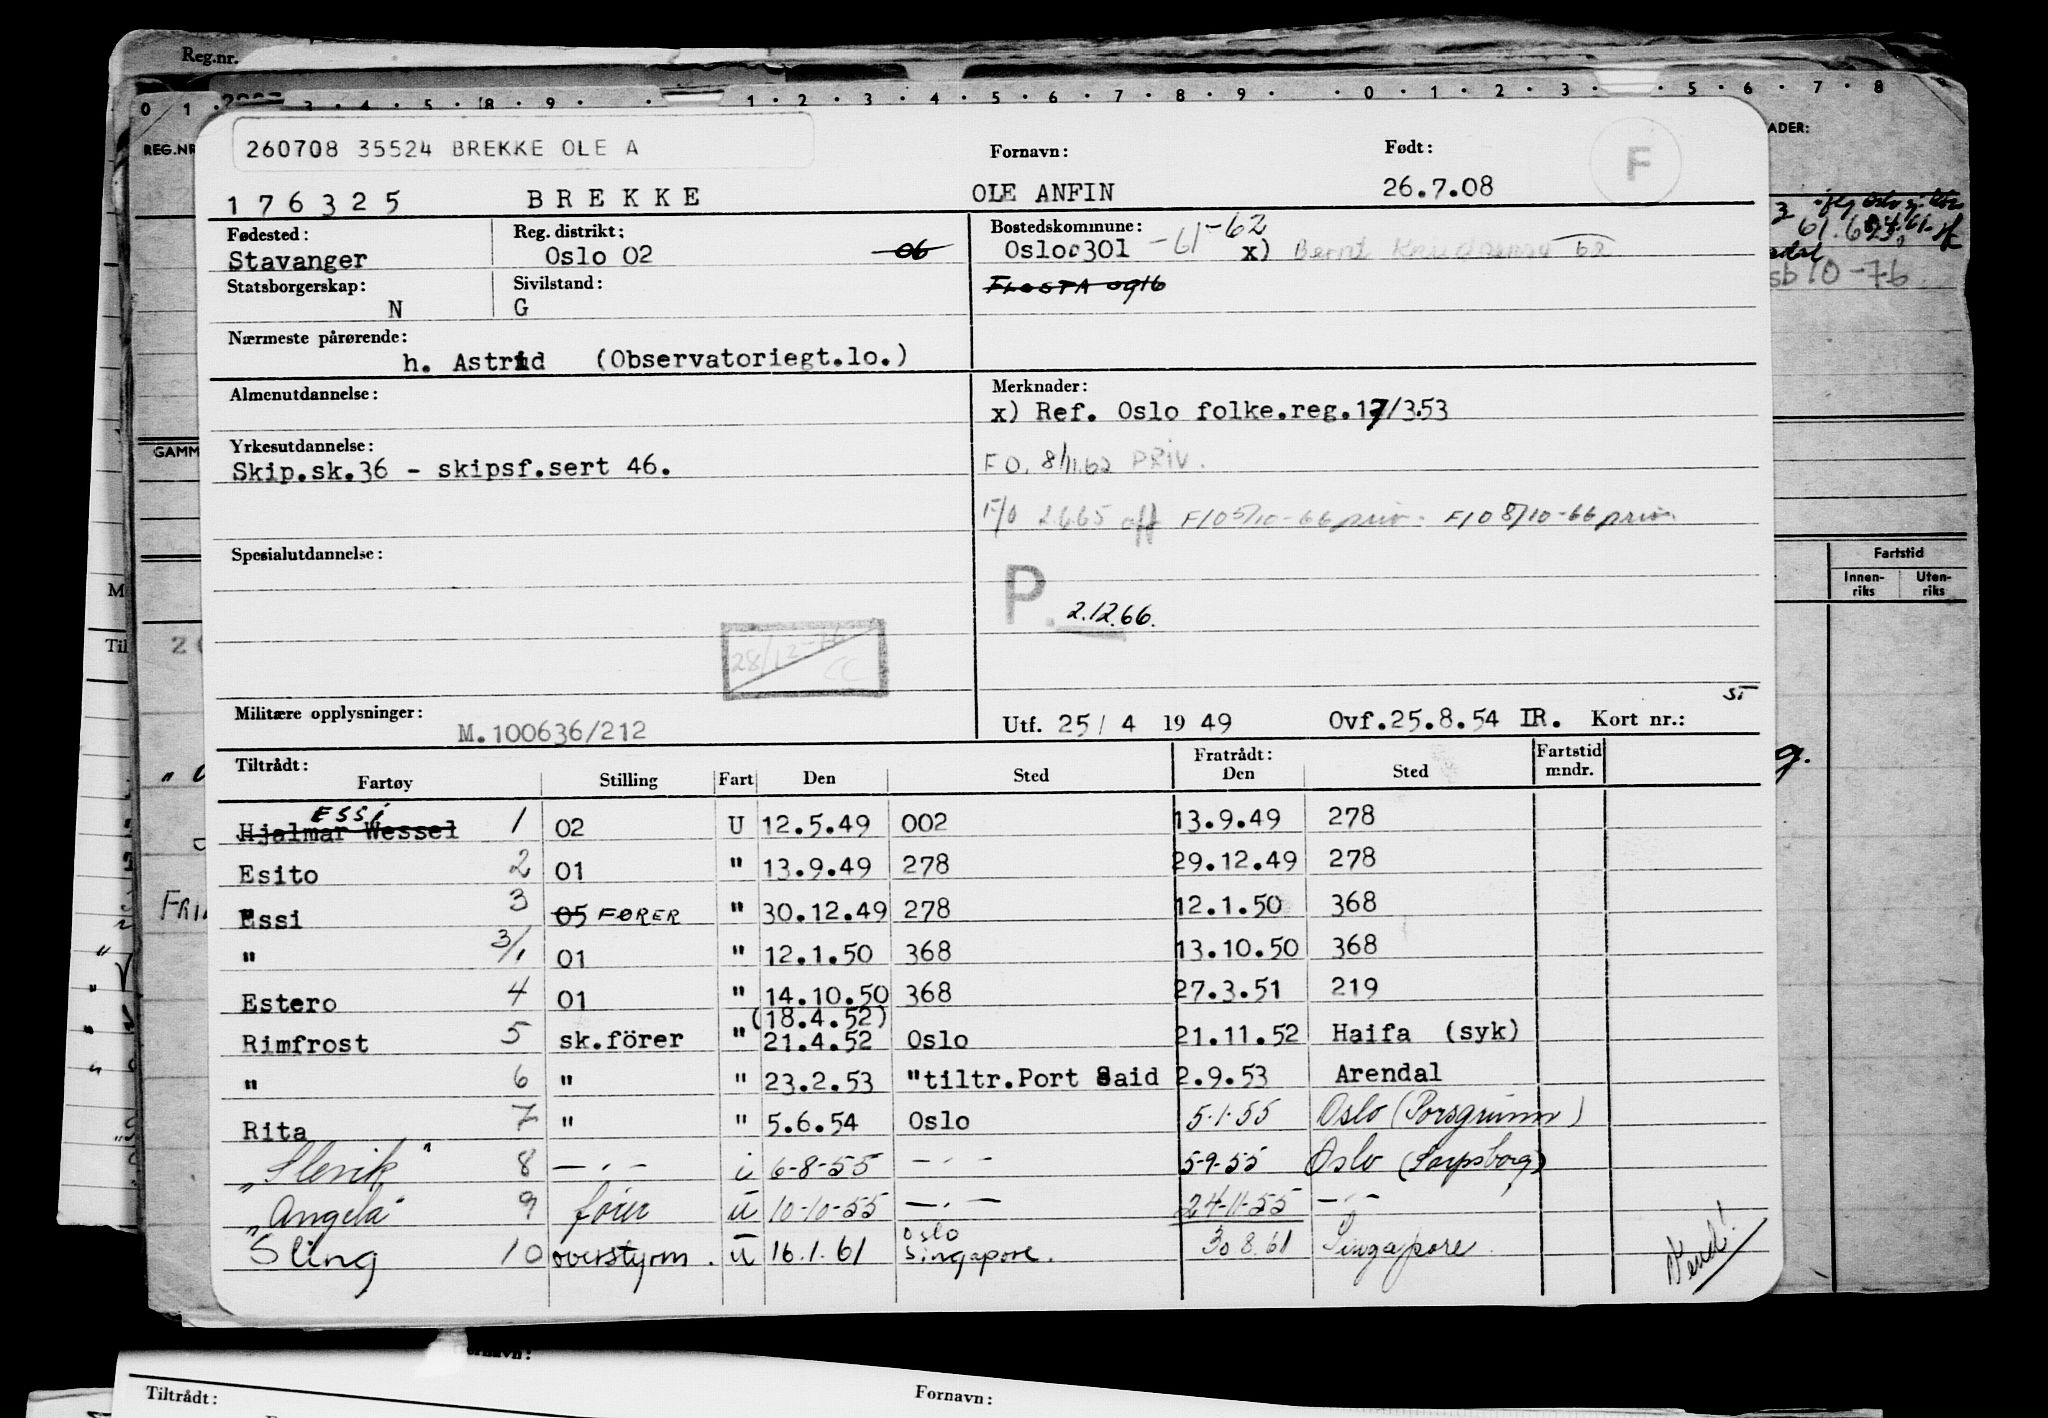 Reg.nr.
0 1 3 4 5 8 9 1 2 3 4 5 6 7 8 9 0 1 2 3 5 6 7 8
REG.NR
ADER:
260708 35524 BREKKE OLE A
Fornavn:
Født:
F
176325 BREKKE OLE ANFIN 26.7.08
Fødested:
Stavanger
Reg. distrikt:
Oslo 02 06
Bostedskommune:
Oslo 0301 -61-62 x) Bernt Knudsensv 62
Flosta 0916
Statsborgerskap:
N
Sivilstand:
G
sb 10-76
Nærmeste pårørende:
h. Astrid (Observatoriegt.10.)
Almenutdannelse:
Merknader:
x) Ref. Oslo folke.reg.17/3.53
GAMM
Yrkesutdannelse:
Skip.sk.36 - skipsf.sert 46.
FO. 8/11.62 PRIV.
F/O 2.6.65 off F/O 5/10-66 priv. F/O 8/10-66 priv.
Spesialutdannelse:
Fartstid
Innen-
riks
Uten-
riks
P. 2.12.66.
28/12-76
CC
Militære opplysninger:
M.100636/212
Utf. 25/4 1949 Ovf.25.8.54 IR. Kort nr.:
ST
Tiltrådt:
Fartøy Stilling Fart Den Sted
Fratrådt:
Den Sted
Fartstid
mndr.
ESSi
Hjalmar Wessel 1 02 U 12.5.49 002 13.9.49 278
Esito 2 01 " 13.9.49 278 29.12.49 278
Essi 3 05 FØRER " 30.12.49 278 12.1.50 368
" 3/1 01 " 12.1.50 368 13.10.50 368
Estero 4 01 " 14.10.50 368 27.3.51 219
(18.4.52)
Rimfrost 5 sk.förer " 21.4.52 Oslo 21.11.52 Haifa (syk)
" 6 " " 23.2.53 "tiltr.Port Said 2.9.53 Arendal
Rita 7 " " 5.6.54 Oslo 5.1.55 Oslo (Porsgrunn)
"Slevik" 8 — " — i 6-8-55 — " — 5-9-55 Oslo (Sarpsborg)
"Angela" 9 fører u 10-10-55 — " — 24-11-55 — " —
Sling 10 overstyrm. u 16.1.61 Oslo Singapore. 30 8.61 Singapore
Vend!
FRI
Tiltrådt:
Fornavn: